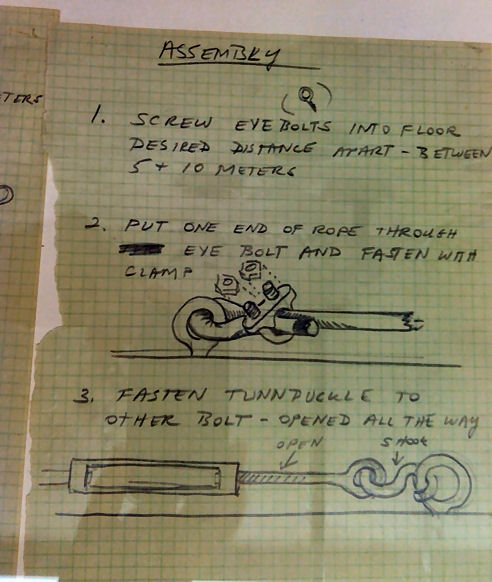 ASSEMBLY
TERS
1. SCREW EYE BOLTS INTO FLOOR
DESIRED DISTANCE APART - BETWEEN
5 + 10 METERS
2. PUT ONE END OF ROPE THROUGH
EYE BOLT AND FASTEN WITH
CLAMP
3. FASTEN TUNNDUCKLE TO
OTHER BOLT - OPENED ALL THE WAY
OPEN
S HOOK